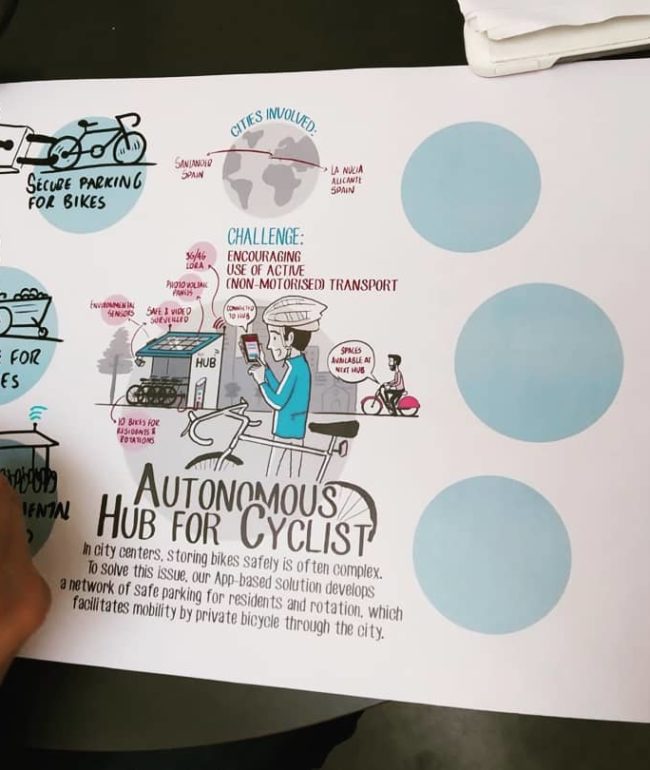 SECURE PARKING
FOR BIKES
FOR
ES
ENTAL
CITIES INVOLVED:
SANTANDER
SPAIN
LA NUCIA
ALICANTE
SPAIN
CHALLENGE:
ENCOURAGING
USE OF ACTIVE
(NON-MOTORISED) TRANSPORT
3G/4G
LORA
PHOTOVOLTAIC
PANELS
ENVIRONMENTAL
SENSORS
SAFE & VIDEO
SURVEILLED
CONNECTED
TO HUB
HUB
SPACES
AVAILABLE AT
NEXT HUB
10 BIKES FOR
RESIDENTS &
ROTATIONS
AUTONOMOUS
HUB FOR CYCLIST
In city centers, storing bikes safely is often complex.
To solve this issue, our App-based solution develops
a network of safe parking for residents and rotation, which
facilitates mobility by private bicycle through the city.